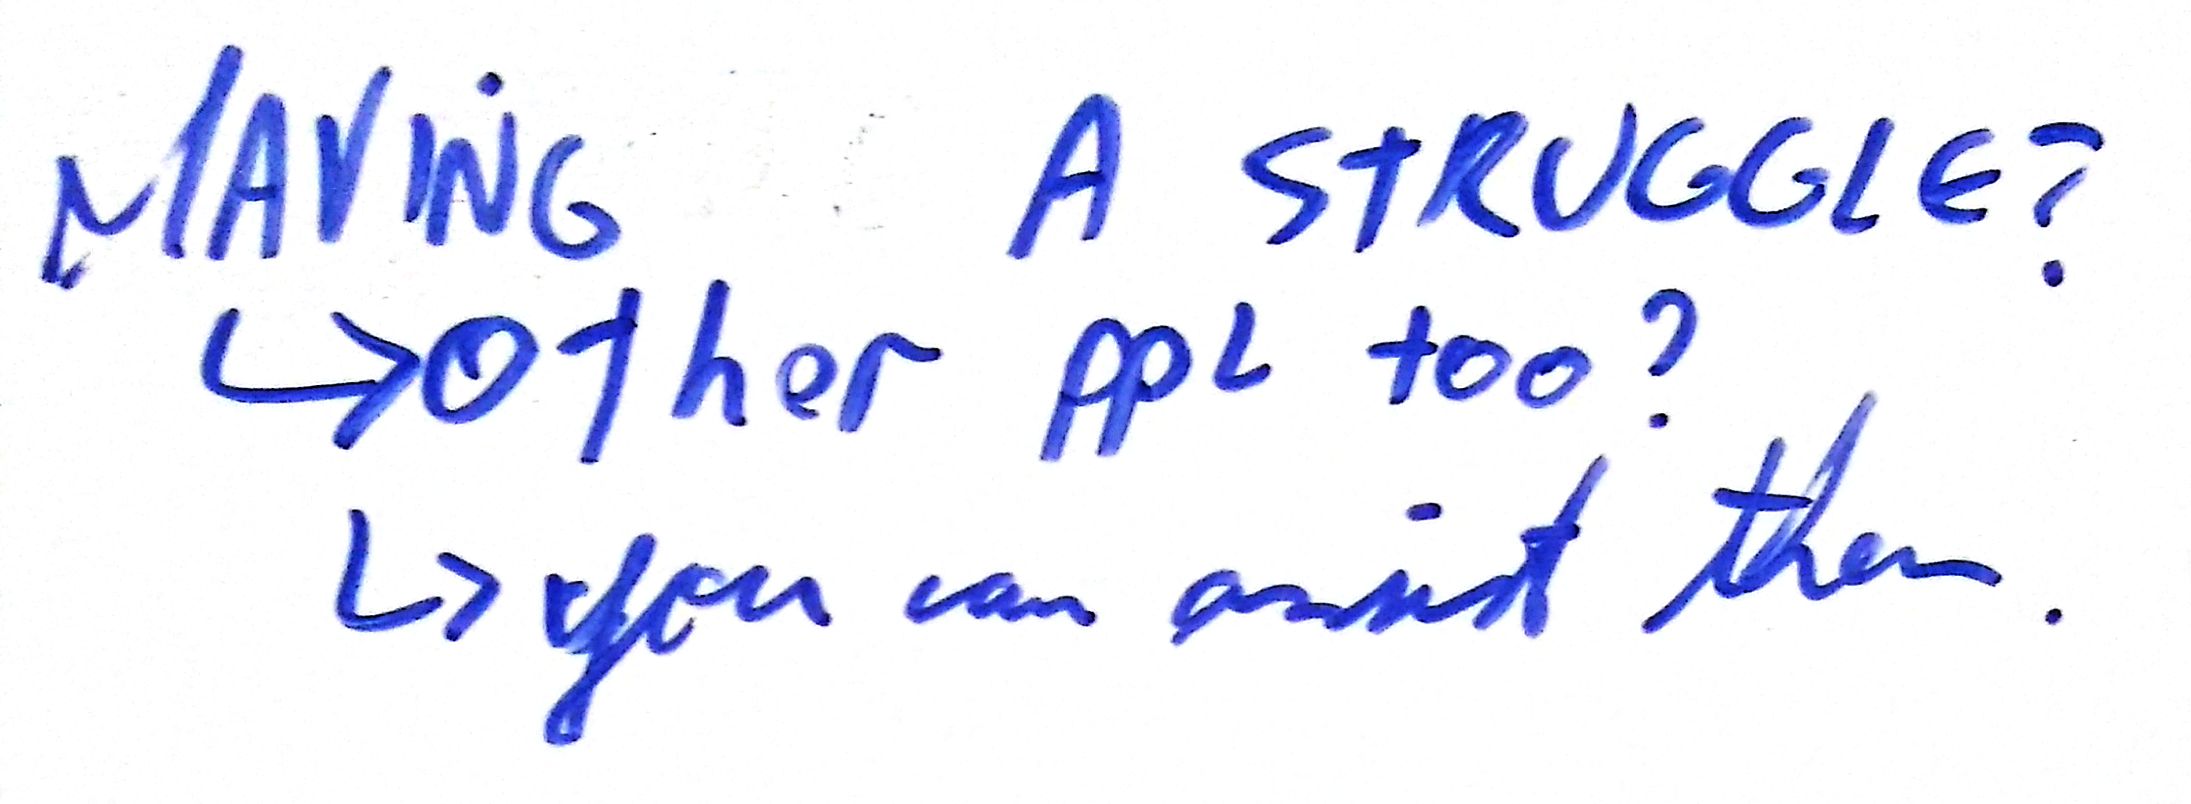 HAVING A STRUGGLE?
↳Other ppl too?
↳you can assist them.